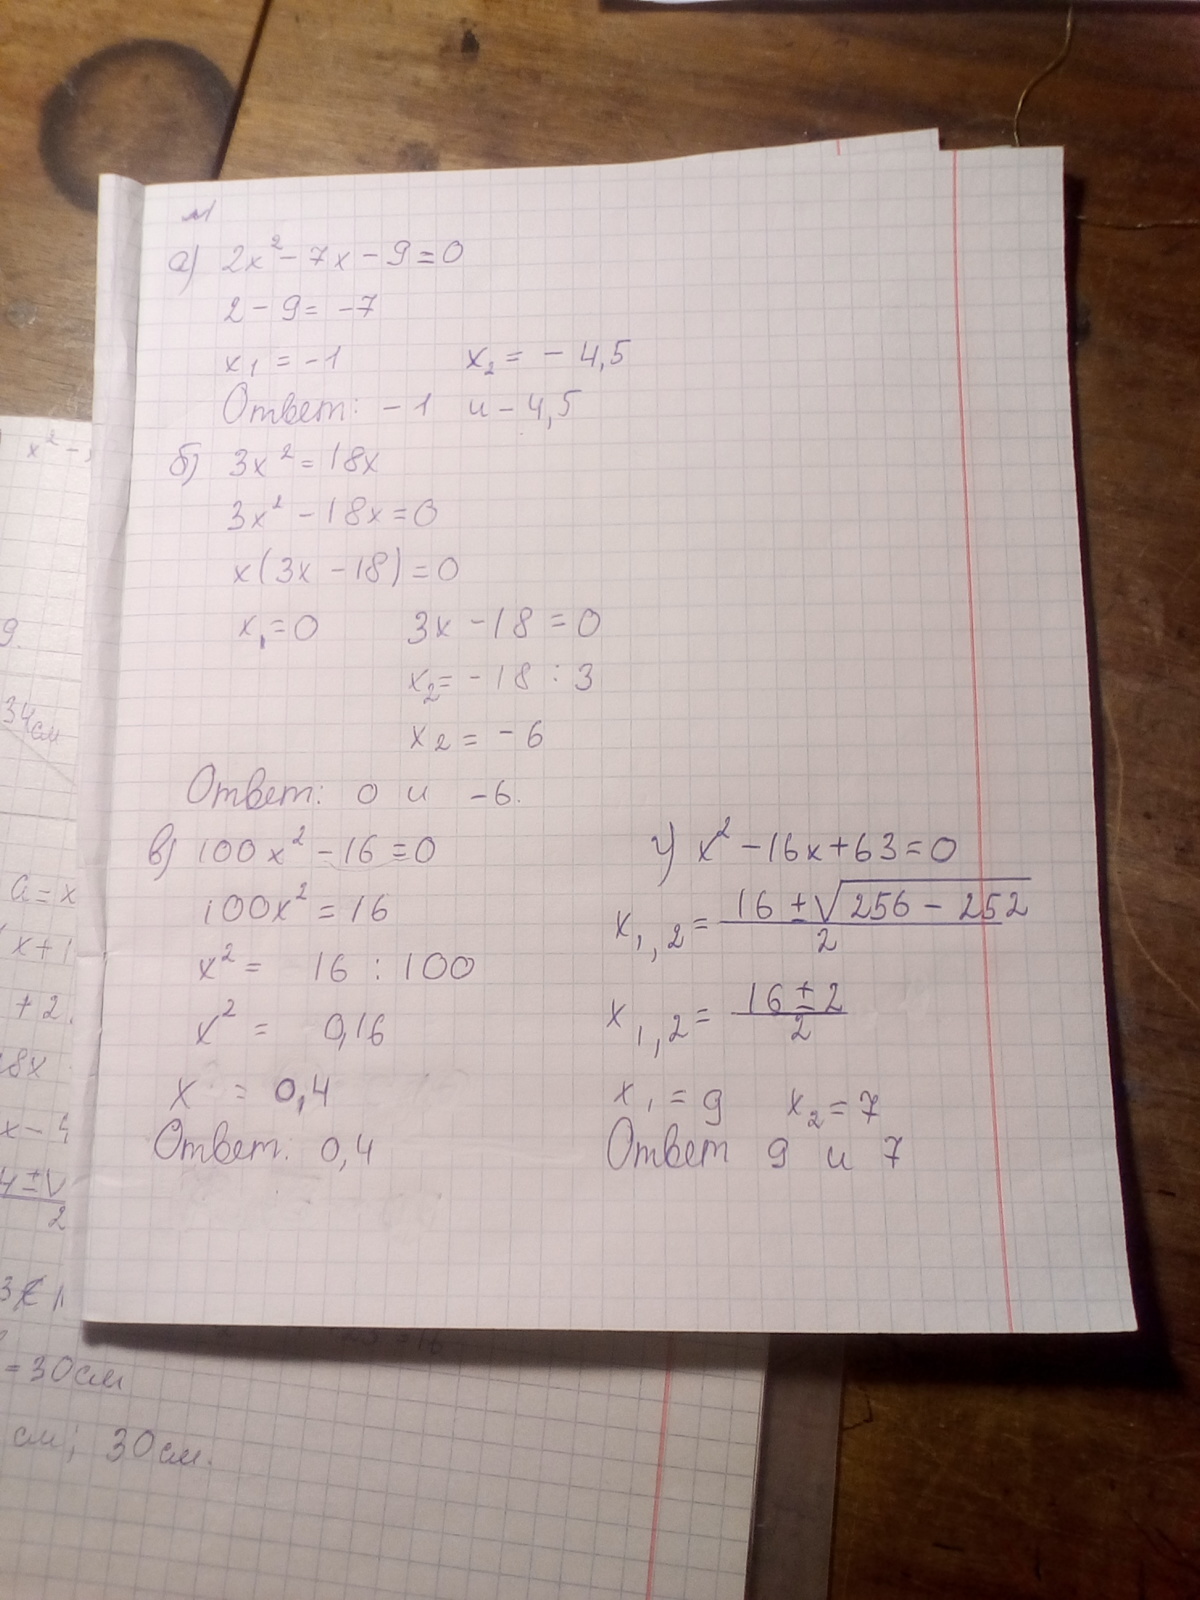 №1
а) 2x² - 7x - 9 = 0
2 - 9 = -7
x₁ = -1 x₂ = - 4,5
Ответ: - 1 и - 4,5
б) 3x² = 18x
3x² - 18x = 0
x(3x - 18) = 0
x₁ = 0 3x - 18 = 0
x₂ = - 18 : 3
x₂ = - 6
Ответ: 0 и -6.
в) 100x² - 16 = 0
100x² = 16
x² = 16 : 100
x² = 0,16
x = 0,4
Ответ. 0,4
г) x² - 16x + 63 = 0
x₁,₂ = (16 ± √(256 - 252)) / 2
x₁,₂ = (16 ± 2) / 2
x₁ = 9 x₂ = 7
Ответ 9 и 7
x² -
9.
34см
a = x
x + 1
+ 2
8x
x - 4
4 ± √
2
= 30см
см; 30см.